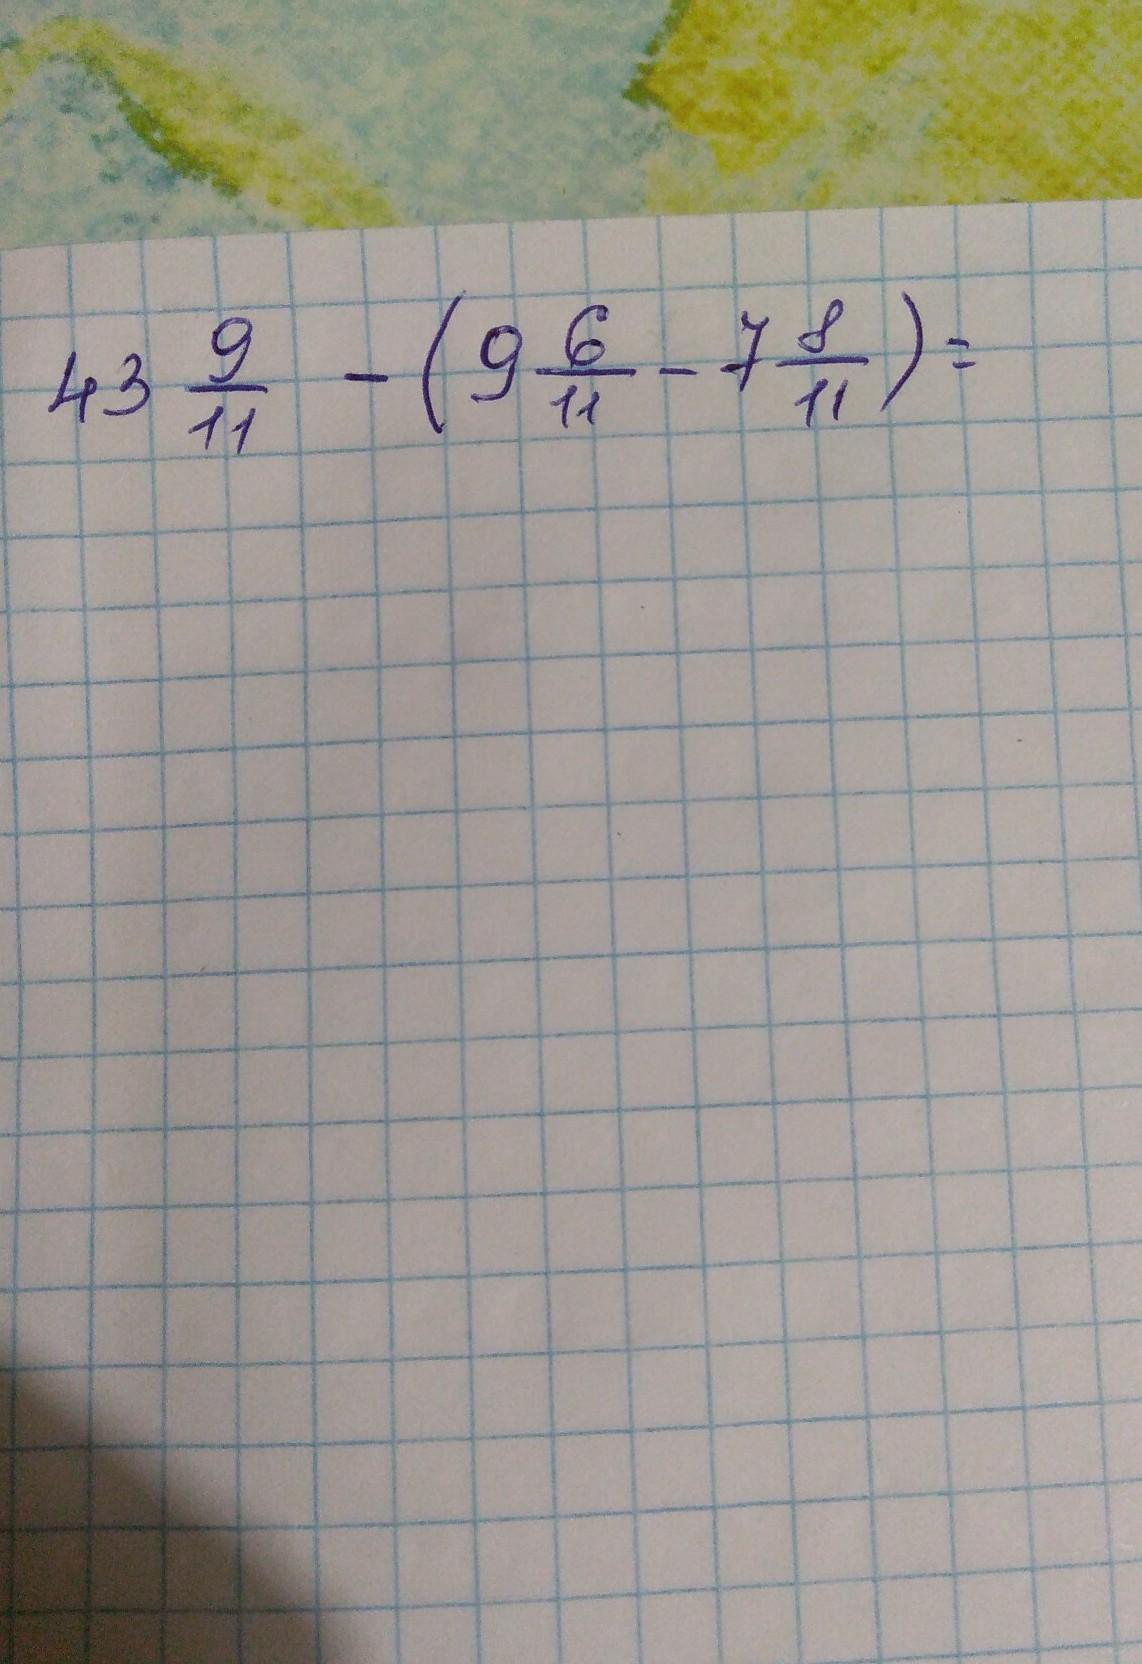 43 9/11 - (9 6/11 - 7 8/11) =